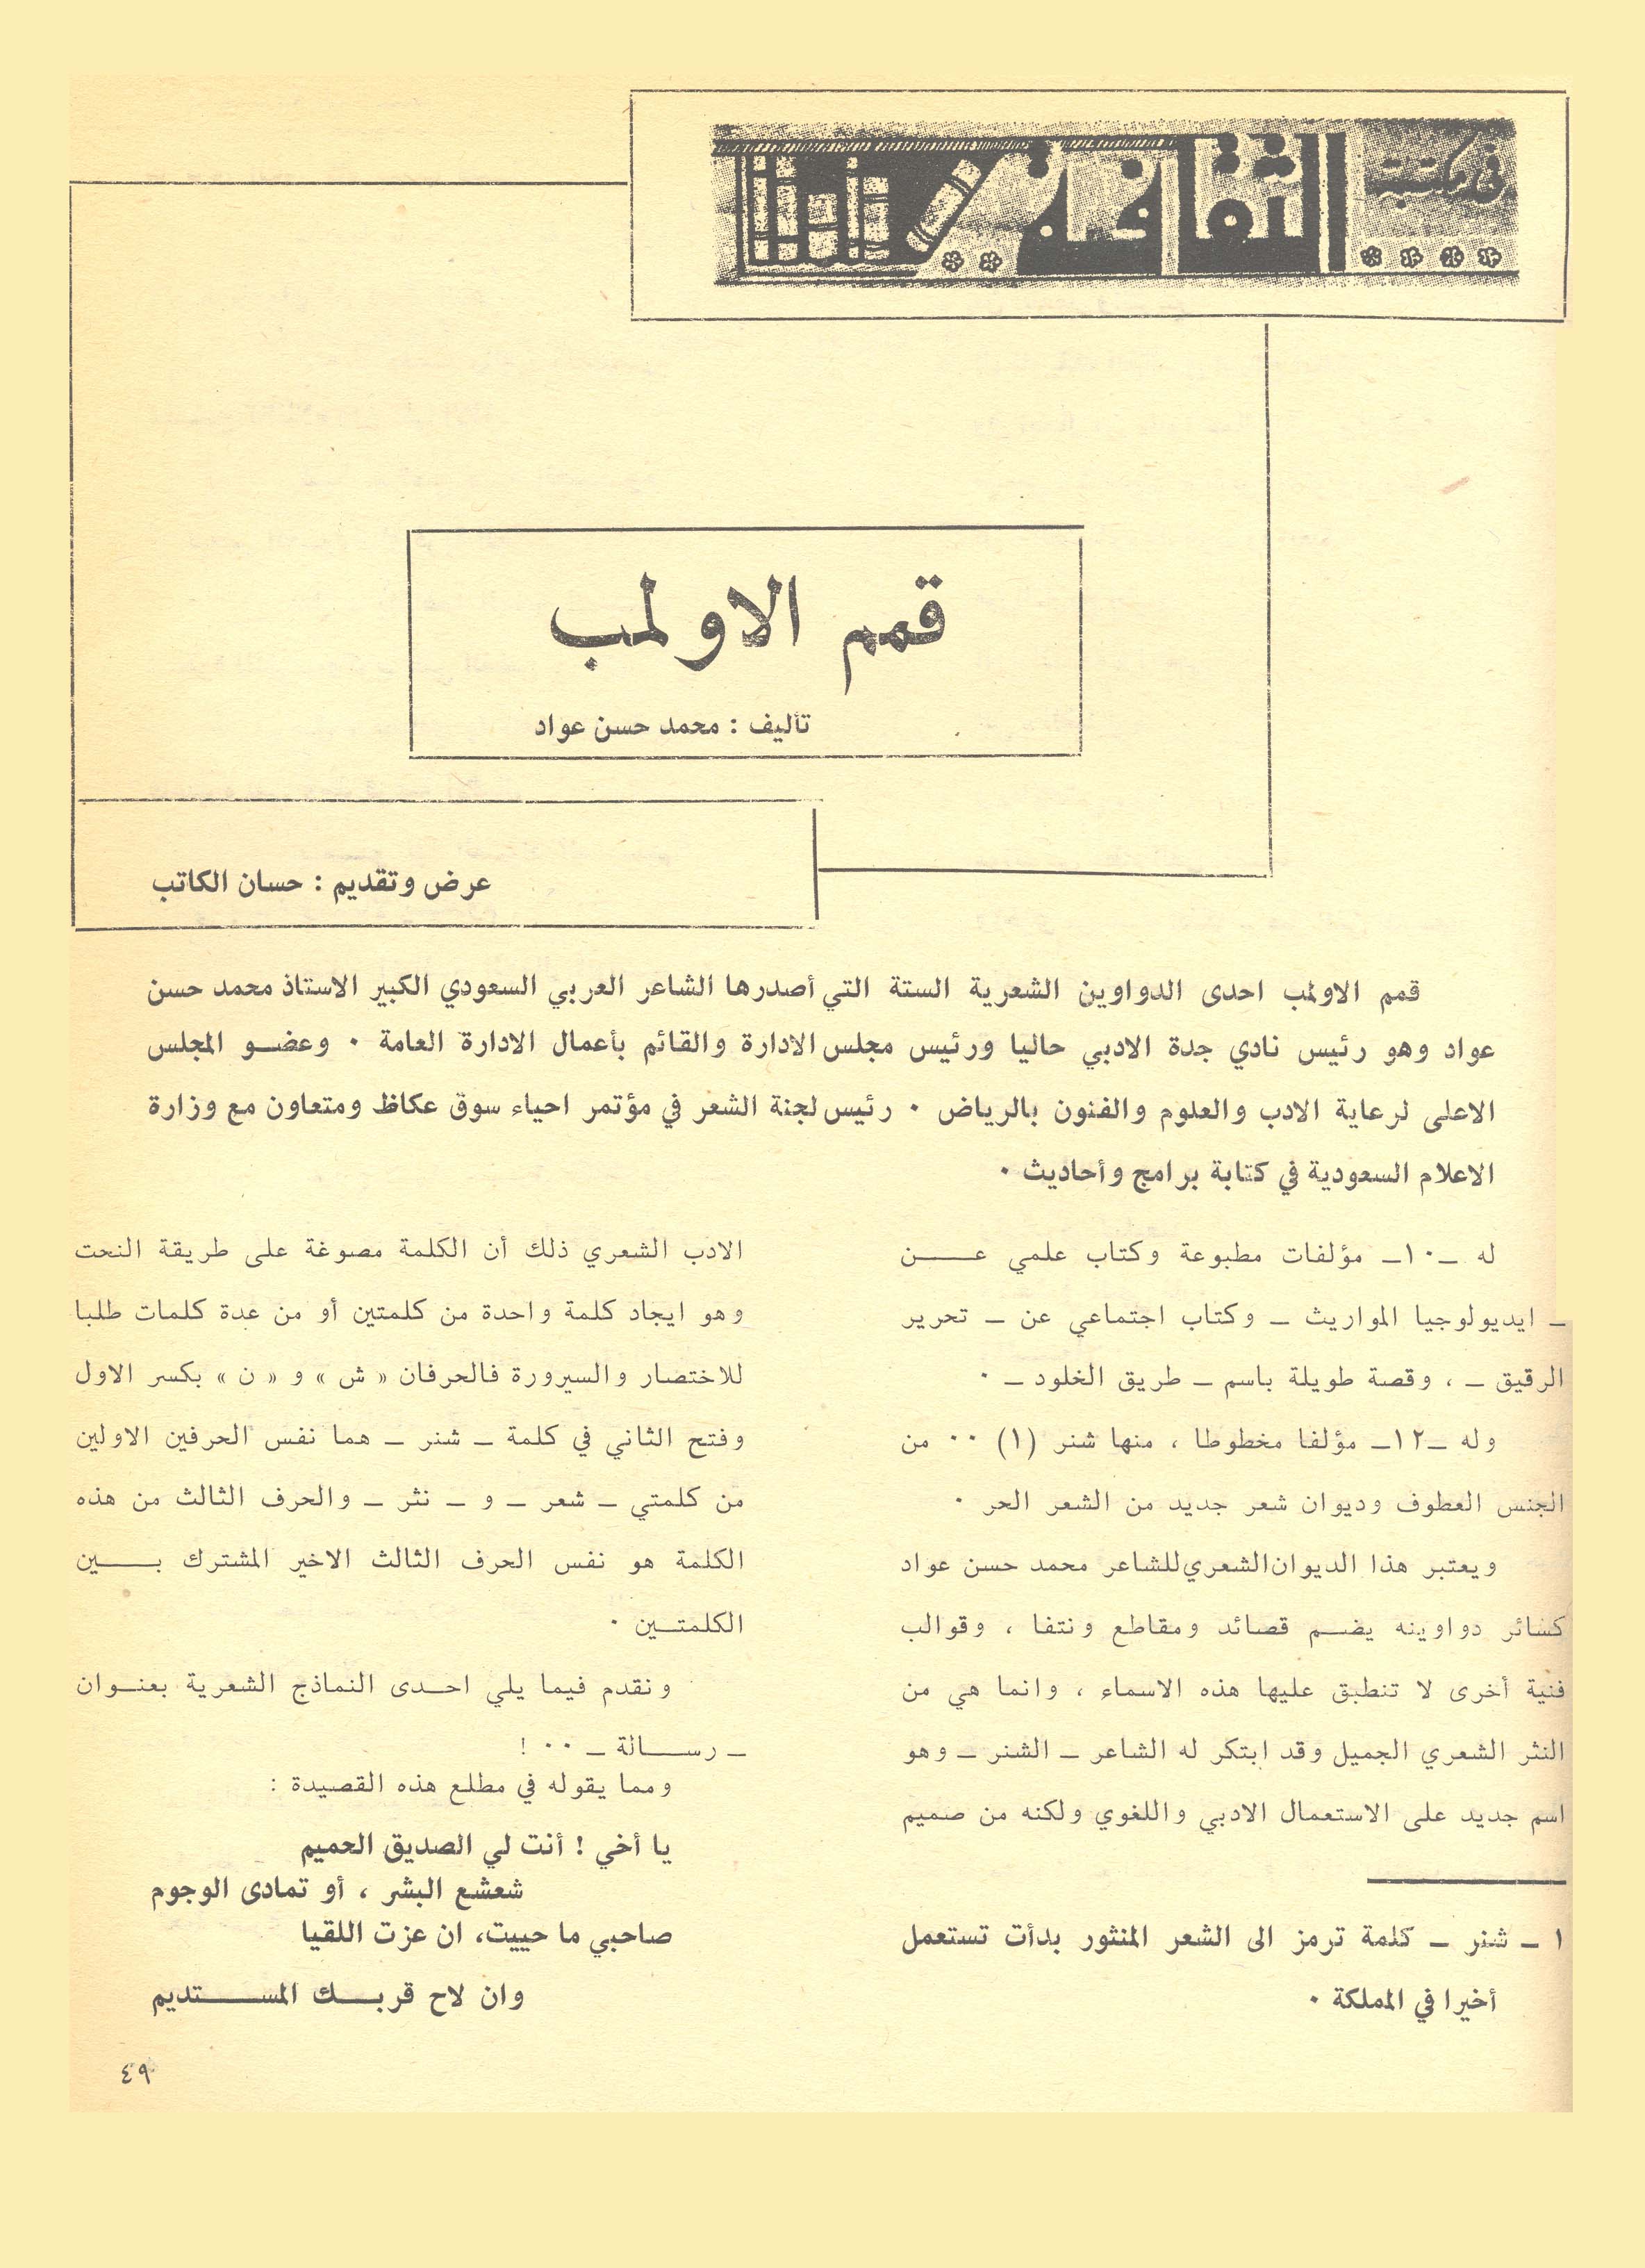 في مكتبة
الثقافة
قمم الاولمب
تأليف : محمد حسن عواد
عرض وتقديم : حسان الكاتب
قمم الاولمب احدى الدواوين الشعرية الستة التي أصدرها الشاعر العربي السعودي الكبير الاستاذ محمد حسن
عواد وهو رئيس نادي جدة الادبي حاليا ورئيس مجلس الادارة والقائم بأعمال الادارة العامة ٠ وعضو المجلس
الاعلى لرعاية الادب والعلوم والفنون بالرياض ٠ رئيس لجنة الشعر في مؤتمر احياء سوق عكاظ ومتعاون مع وزارة
الاعلام السعودية في كتابة برامج وأحاديث ٠
له ــ١٠ــ مؤلفات مطبوعة وكتاب علمي عن
ــ ايديولوجيا المواريث ــ وكتاب اجتماعي عن ــ تحرير
الرقيق ــ ، وقصة طويلة باسم ــ طريق الخلود ــ ٠
وله ــ١٢ــ مؤلفا مخطوطا ، منها شنر (١) ٠٠ من
الجنس العطوف وديوان شعر جديد من الشعر الحر ٠
ويعتبر هذا الديوان الشعري للشاعر محمد حسن عواد
كسائر دواوينه يضم قصائد ومقاطع ونتفا ، وقوالب
فنية أخرى لا تنطبق عليها هذه الاسماء ، وانما هي من
النثر الشعري الجميل وقد ابتكر له الشاعر ــ الشنر ــ وهو
اسم جديد على الاستعمال الادبي واللغوي ولكنه من صميم
١ ــ شنر ــ كلمة ترمز الى الشعر المنثور بدأت تستعمل
أخيرا في المملكة ٠
الادب الشعري ذلك أن الكلمة مصوغة على طريقة النحت
وهو ايجاد كلمة واحدة من كلمتين أو من عدة كلمات طلبا
للاختصار والسيرورة فالحرفان « ش » و « ن » بكسر الاول
وفتح الثاني في كلمة ــ شنر ــ هما نفس الحرفين الاولين
من كلمتي ــ شعر ــ و ــ نثر ــ والحرف الثالث من هذه
الكلمة هو نفس الحرف الثالث الاخير المشترك بين
الكلمتين ٠
ونقدم فيما يلي احدى النماذج الشعرية بعنوان
ــ رسالة ــ ٠٠ !
ومما يقوله في مطلع هذه القصيدة :
يا أخي ! أنت لي الصديق الحميم
شعشع البشر ، أو تمادى الوجوم
صاحبي ما حييت، ان عزت اللقيا
وان لاح قربك المستديم
٤٩